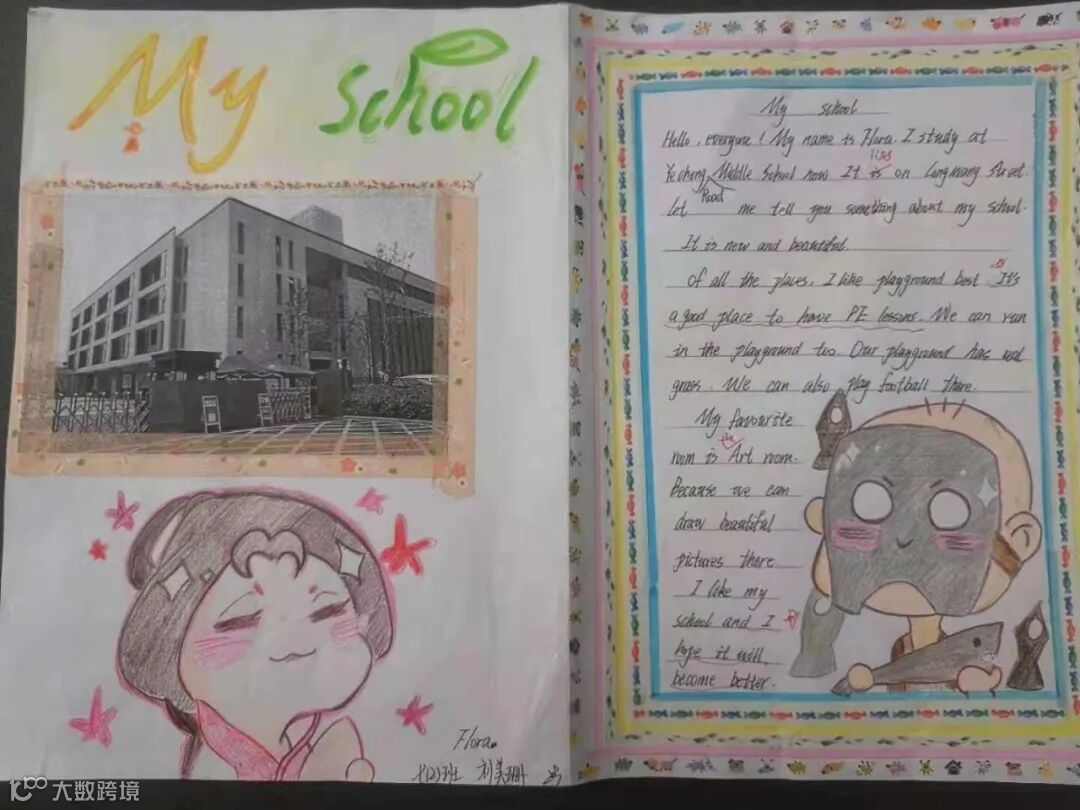 My School
My school
Hello, everyone! My name is Flora. I study at
lies
Yecheng Middle School now It is on Longwang Street.
Road
Let me tell you something about my school.
It is new and beautiful.
Of all the places, I like playground best It's
a good place to have PE lessons. We can run
in the playground too Our playground has real
grass. We can also play football there.
My favourite
the
room is Art room.
Because we can
draw beautiful
pictures there.
I like my
school and I
hope it will
become better.
Flora
七(2)班 刘美珊
大数跨境